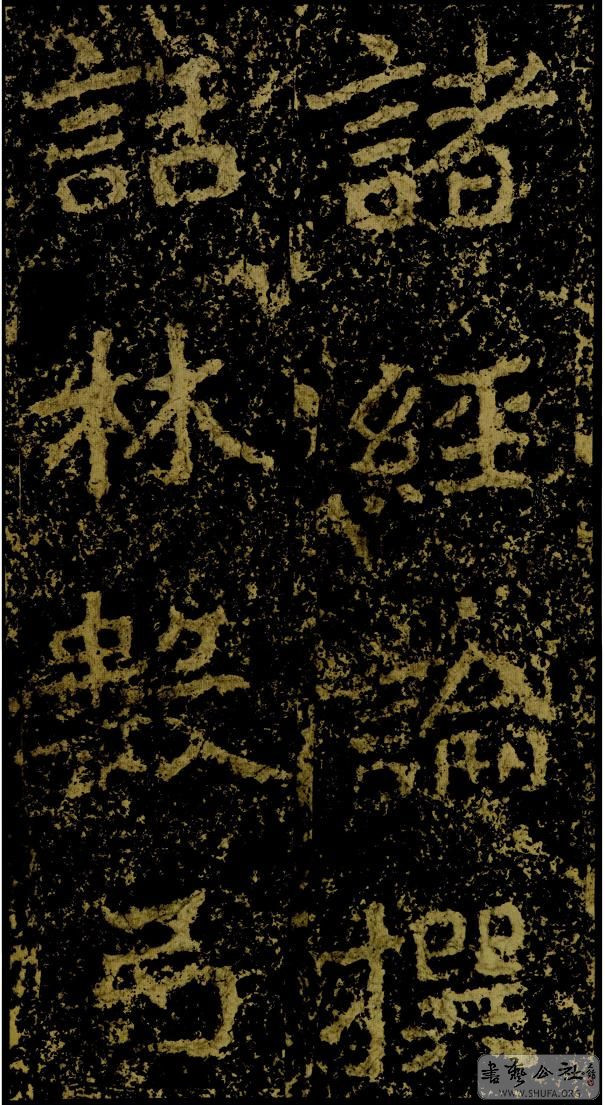 諸經論撰
話林數弓
書藝公社
WWW.SHUFA.ORG